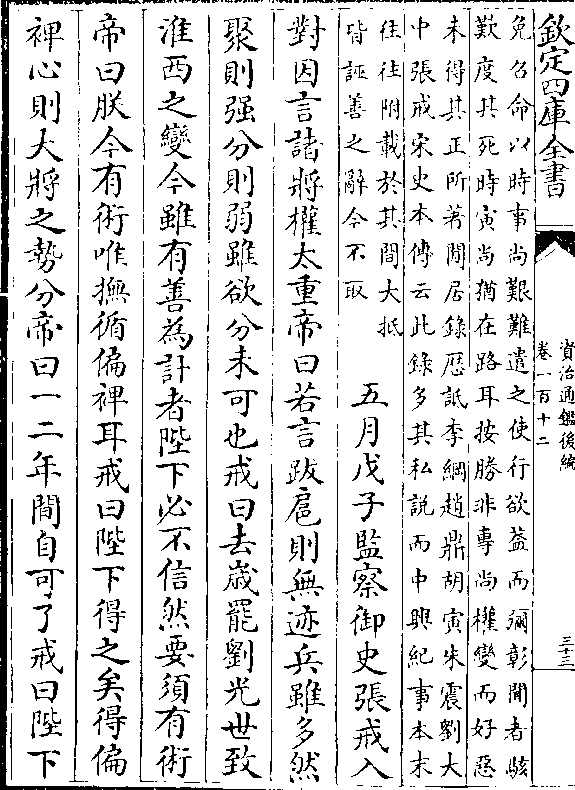 欽定四庫全書
資治通鑑後編
卷一百十二
三十三
免召命以時事尚艱難遣之使行欲蓋而彌彰聞者駭
歎度其死時寅尚猶在路耳按勝非專尚權變而好惡
未得其正所著閒居錄厯詆李綱趙鼎胡寅朱震劉大
中張戒宋史本傳云此錄多其私説而中興紀事本末
往往附載於其間大抵
皆誣善之辭今不取
五月戊子監察御史張戒入
對因言諸將權太重帝曰若言跋扈則無迹兵雖多然
聚則强分則弱雖欲分未可也戒曰去歲罷劉光世致
淮西之變今雖有善為計者陛下必不信然要須有術
帝曰朕今有術唯撫循偏裨耳戒曰陛下得之矣得偏
裨心則大將之勢分帝曰一二年間自可了戒曰陛下